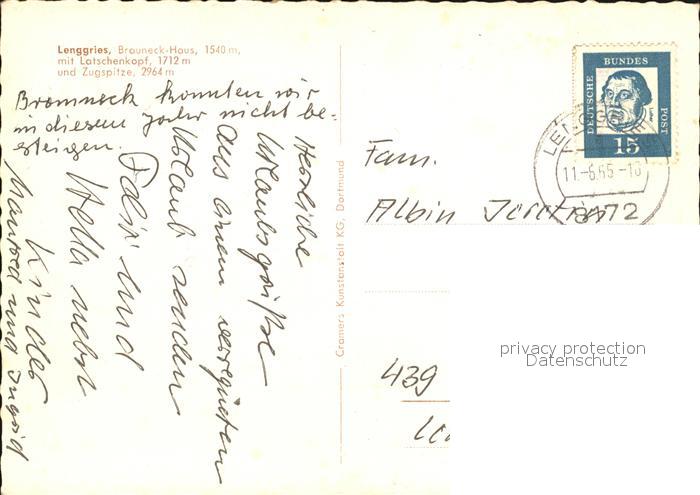 Lenggries, Brauneck-Haus, 1540 m,
mit Latschenkopf, 1712 m
und Zugspitze, 2964 m
konnten wir
in diesem Jahr nicht be-
steigen.
Herzliche
Urlaubsgrüße
aus einem verregneten
Urlaub senden
Felix und
Hella nebst
Kinder
Manfred und Ingrid
Cramers Kunstanstalt KG, Dortmund
DEUTSCHE
BUNDES
POST
15
11.-6.65-18
Fam.
Albin
439
privacy protection
Datenschutz